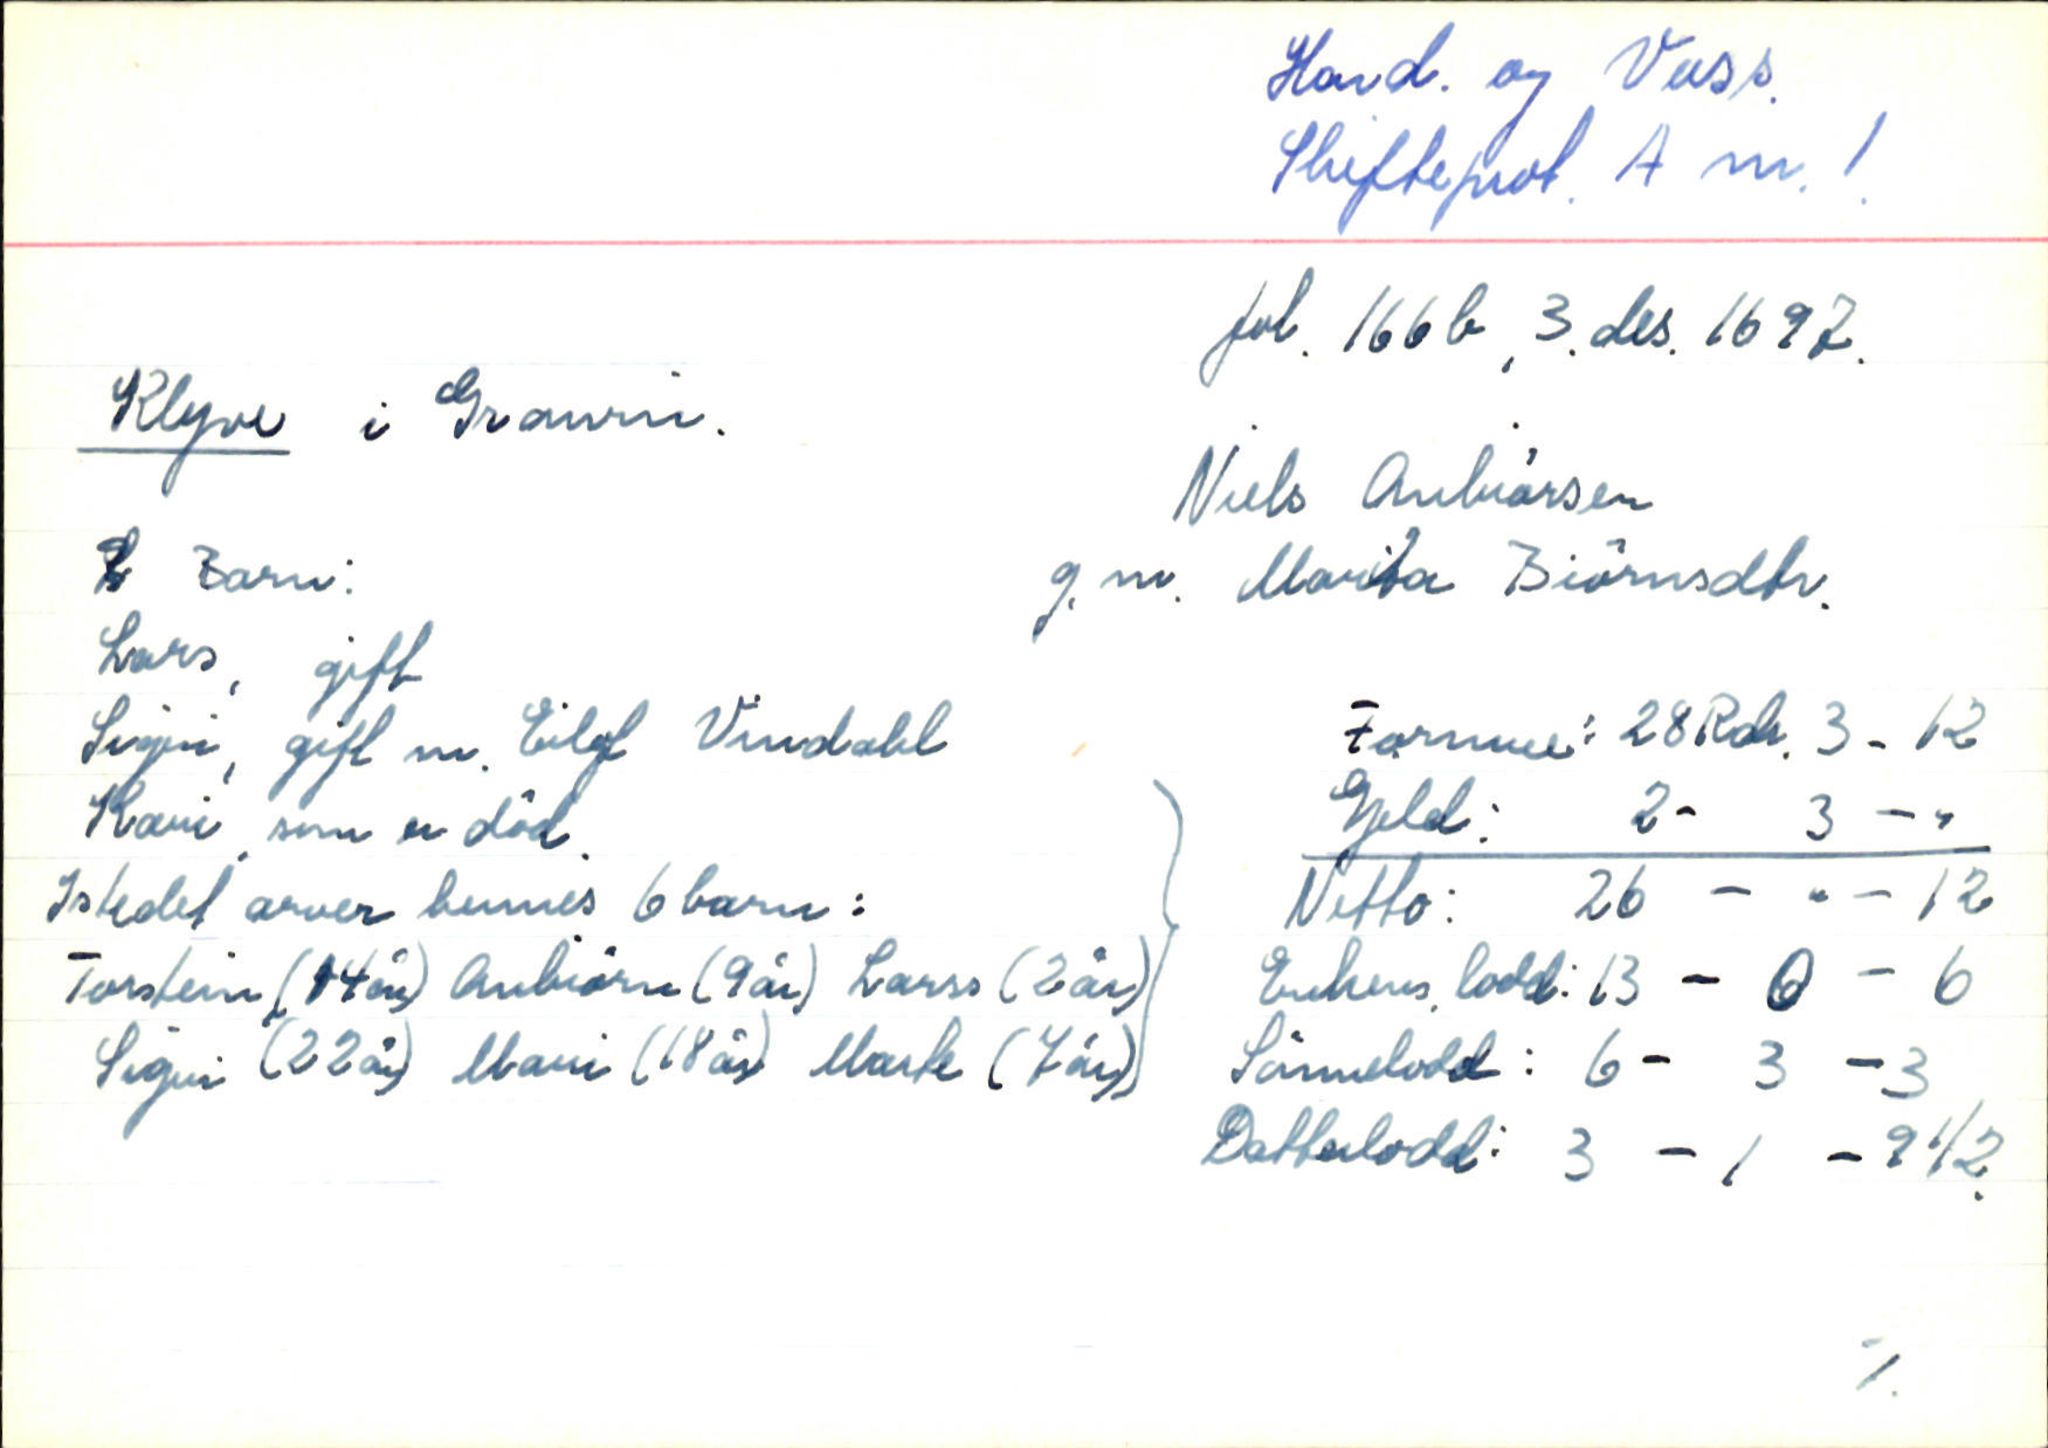 Hard. og Voss.
Skifteprot. A nr. 1.
fol. 166b, 3. des. 1697.
Klyve i Grawin.
Niels Anbiörsen
g. m. Marita Biörnsdtr.
Barn:
Lars, gift
Sigri, gift m. Eilef Vindahl
Kari, som er död.
Istedet arver hennes 6 barn:
Torstein (14 år) Anbiörn (9 år) Larss (2 år)
Sigri (22 år) Mari (18 år) Marte (7 år)
Formue: 28 Rdr. 3 - 12
Gjeld: 2 - 3 - "
Netto: 26 - " - 12
Enkens lodd: 13 - 0 - 6
Sönnelodd: 6 - 3 - 3
Datterlodd: 3 - 1 - 9 1/2.